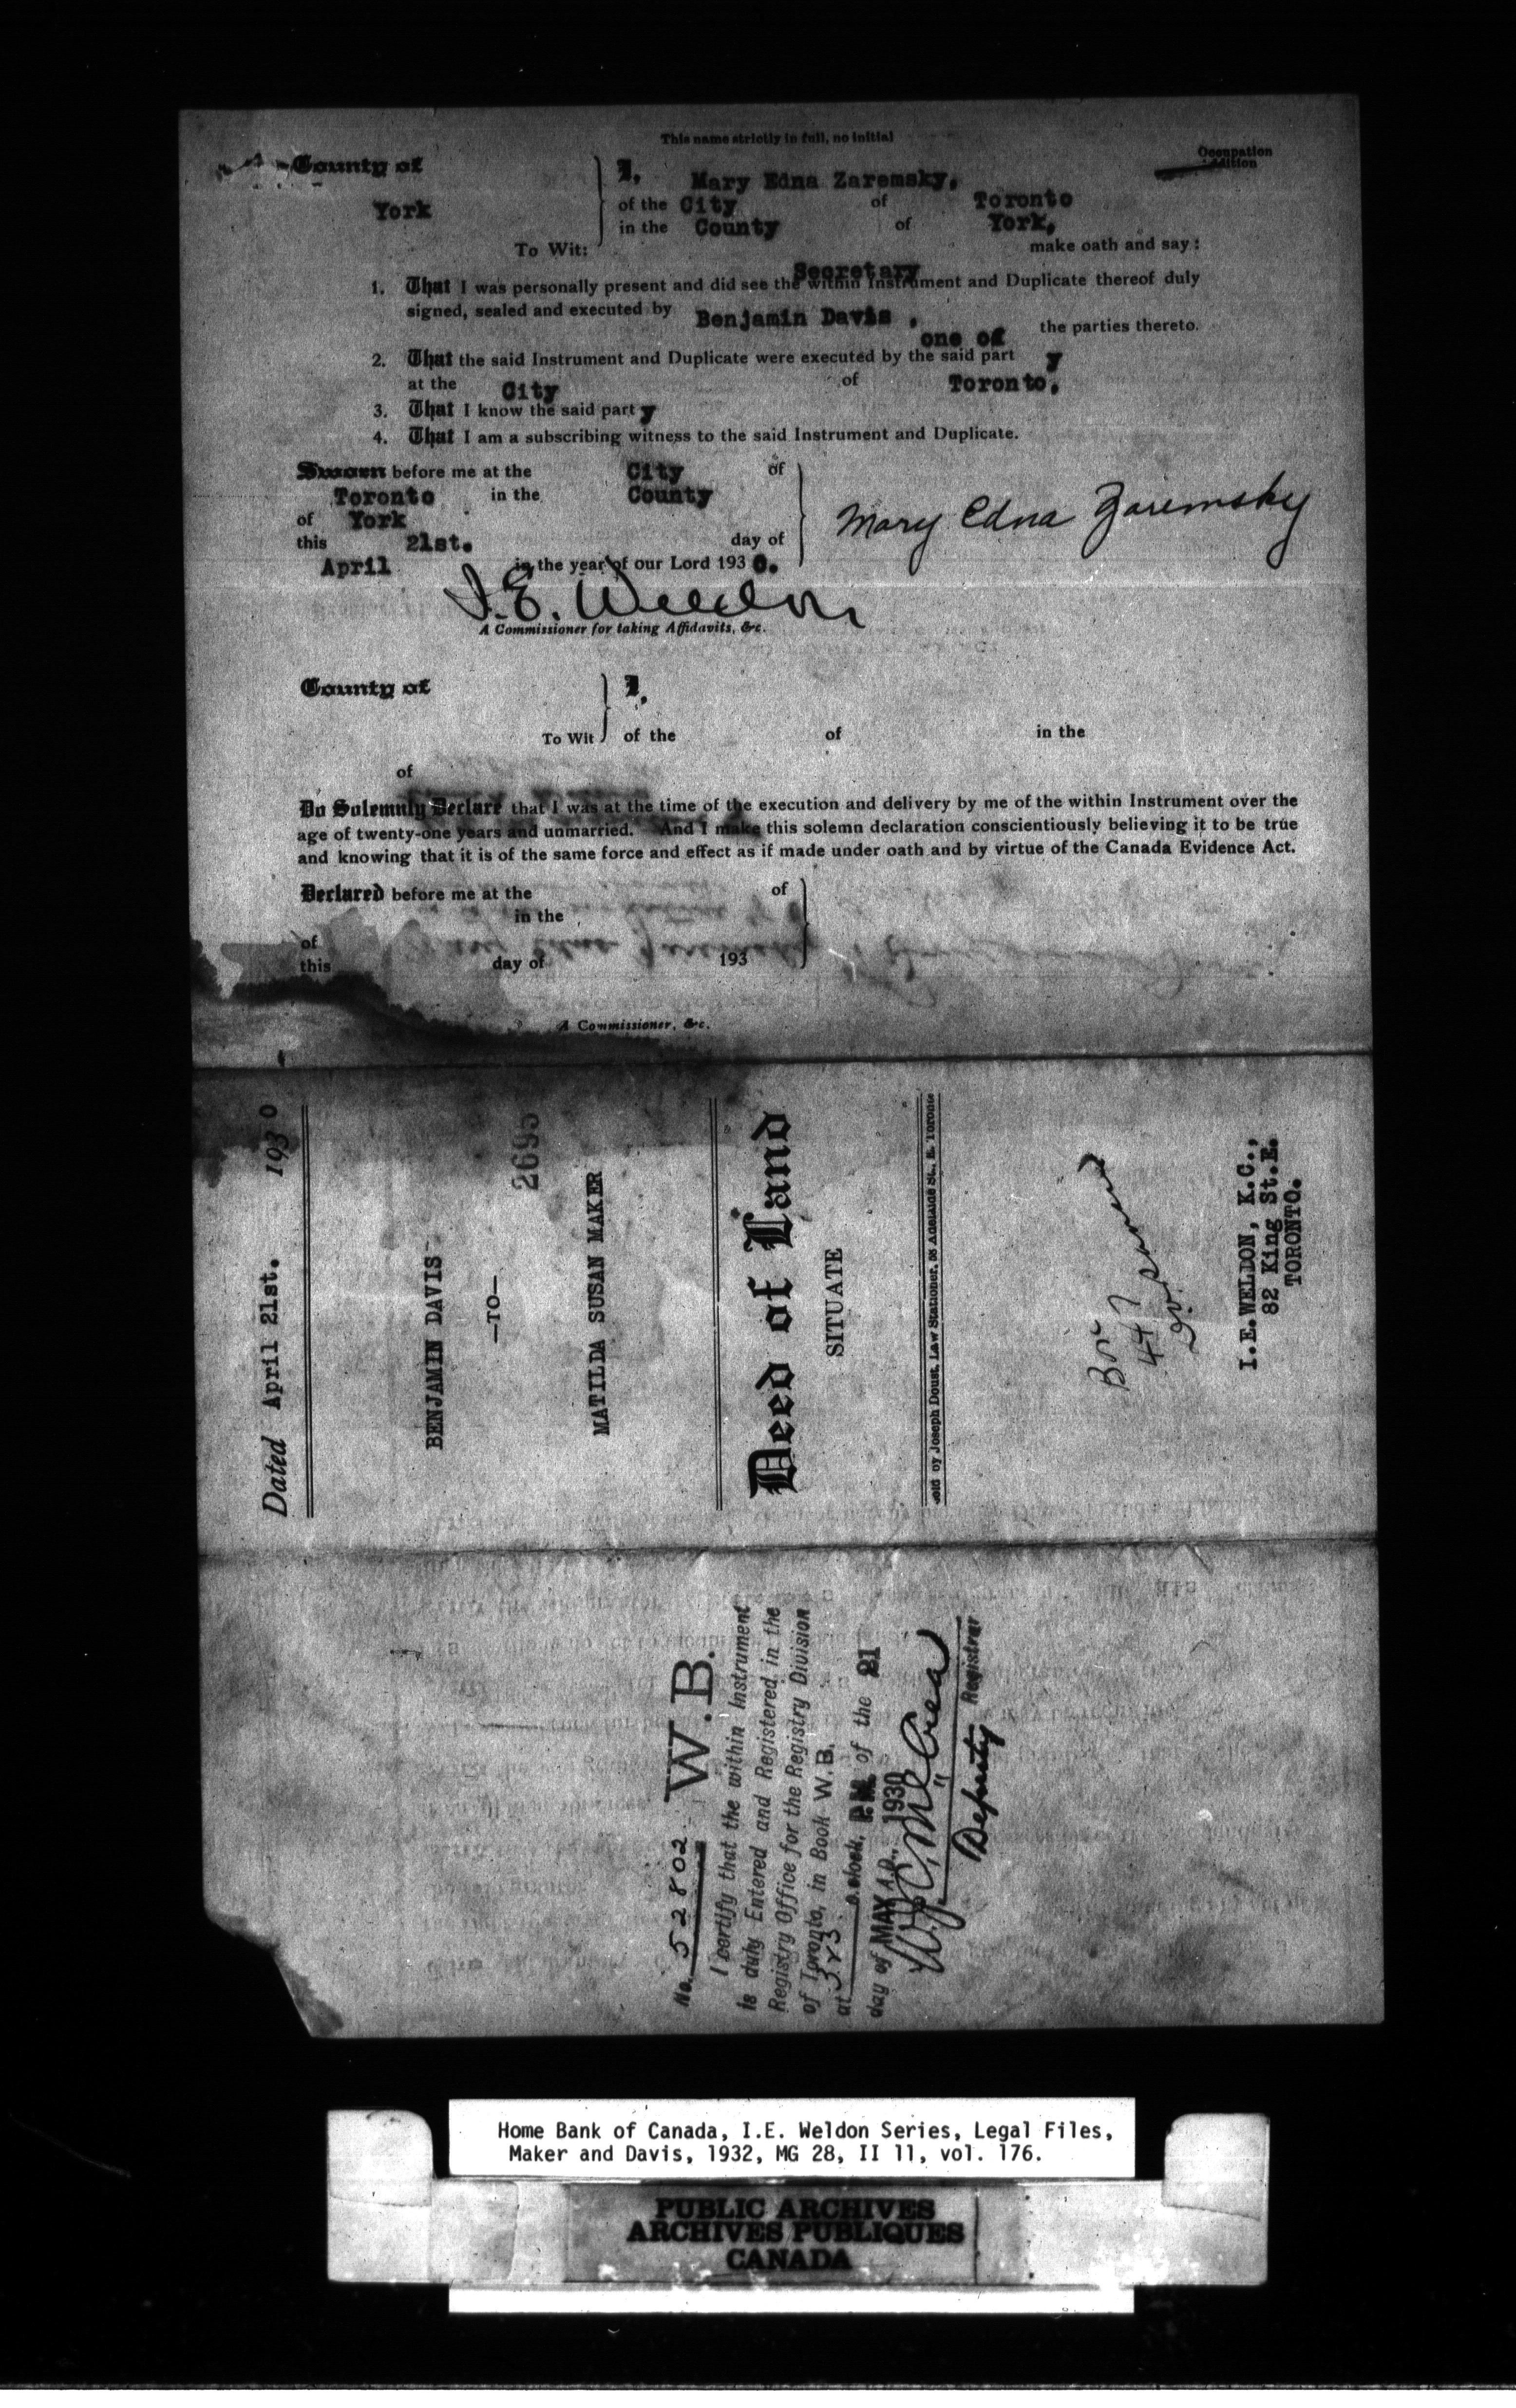 This name strictly in full, no initial
Occupation
County of
York
To Wit:
I, Mary Edna Zaremsky,
of the City of Toronto
in the County of York,
make oath and say:
Secretary
1. That I was personally present and did see the within Instrument and Duplicate thereof duly
signed, sealed and executed by Benjamin Davis , one of the parties thereto.
2. That the said Instrument and Duplicate were executed by the said part y
at the City of Toronto,
3. That I know the said party
4. That I am a subscribing witness to the said Instrument and Duplicate.
Sworn before me at the City of
Toronto in the County
of York
this 21st. day of
April in the year of our Lord 1930.
Mary Edna Zaremsky
I.E. Weldon
A Commissioner for taking Affidavits, &c.
County of
To Wit
I,
of the of in the
of
Do Solemnly Declare that I was at the time of the execution and delivery by me of the within Instrument over the
age of twenty-one years and unmarried. And I make this solemn declaration conscientiously believing it to be true
and knowing that it is of the same force and effect as if made under oath and by virtue of the Canada Evidence Act.
Declared before me at the of
in the
of
this day of 193
A Commissioner, &c.
Dated April 21st. 1930
BENJAMIN DAVIS
—TO—
2695
MATILDA SUSAN MAKER
Deed of Land
SITUATE
by Joseph Doust, Law Stationer, Adelaide St., E. Toronto
447
I.E.WELDON, K.C.,
82 King St.E.
TORONTO.
No. 52802 W.B.
I certify that the within Instrument
is duly Entered and Registered in the
Registry Office for the Registry Division
of Toronto, in Book W.B.
at 3.23 o'clock, P.M. of the 21
day of MAY A.D., 1930
Deputy Registrar
Home Bank of Canada, I.E. Weldon Series, Legal Files,
Maker and Davis, 1932, MG 28, II 11, vol. 176.
PUBLIC ARCHIVES
ARCHIVES PUBLIQUES
CANADA